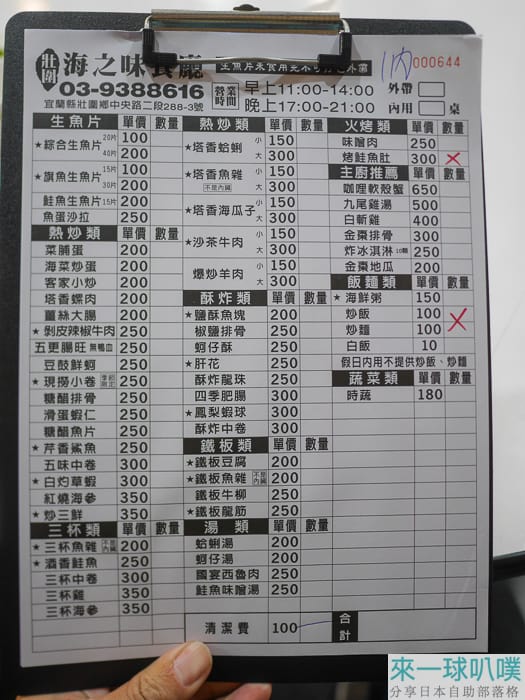 壯圍 海之味食廳
03-9388616
宜蘭縣壯圍鄉中央路二段288-3號
營業時間 早上11:00-14:00
晚上17:00-21:00
1內 000644
外帶
內用 桌
生魚片 單價 數量
★綜合生魚片 20片 100
40片 200
★旗魚生魚片 15片 100
30片 200
鮭魚生魚片 15片 200
魚蛋沙拉 250
熱炒類 單價 數量
菜脯蛋 200
海菜炒蛋 200
客家小炒 200
塔香螺肉 200
薑絲大腸 200
★剝皮辣椒牛肉 250
五更腸旺 無鴨血 250
豆鼓鮮蚵 250
★現撈小卷 250
糖醋排骨 250
滑蛋蝦仁 250
糖醋魚片 250
★芹香鯊魚 250
五味中卷 300
★白灼草蝦 300
紅燒海參 350
★炒三鮮 350
三杯類 單價 數量
★三杯魚雜 不是內臟 200
★酒香鮭魚 250
三杯中卷 300
三杯雞 350
三杯海參 350
熱炒類 單價 數量
★塔香蛤蜊 小 150
大 300
★塔香魚雜 小 150
不是內臟 大 300
★塔香海瓜子 小 150
大 300
★沙茶牛肉 小 150
大 300
爆炒羊肉 小 150
大 300
酥炸類 單價 數量
★鹽酥魚塊 200
椒鹽排骨 250
蚵仔酥 250
★肝花 250
酥炸龍珠 250
四季肥腸 300
★鳳梨蝦球 300
酥炸中卷 300
鐵板類 單價 數量
★鐵板豆腐 200
★鐵板魚雜 不是內臟 200
鐵板牛柳 250
★鐵板龍筋 250
湯 類 單價 數量
蛤蜊湯 200
蚵仔湯 200
國宴西魯肉 250
鮭魚味噌湯 250
清潔費 100 合計
火烤類 單價 數量
味噌肉 250
烤鮭魚肚 300 ×
主廚推薦 單價 數量
咖哩軟殼蟹 650
九尾雞湯 500
白斬雞 400
金棗排骨 300
炸冰淇淋 10顆 250
金棗地瓜 200
飯麵類 單價 數量
★海鮮粥 150
炒飯 100 ×
炒麵 100
白飯 10
假日內用不提供炒飯、炒麵
蔬菜類 單價 數量
時蔬 180
來一球叭噗
分享日本自助部落格